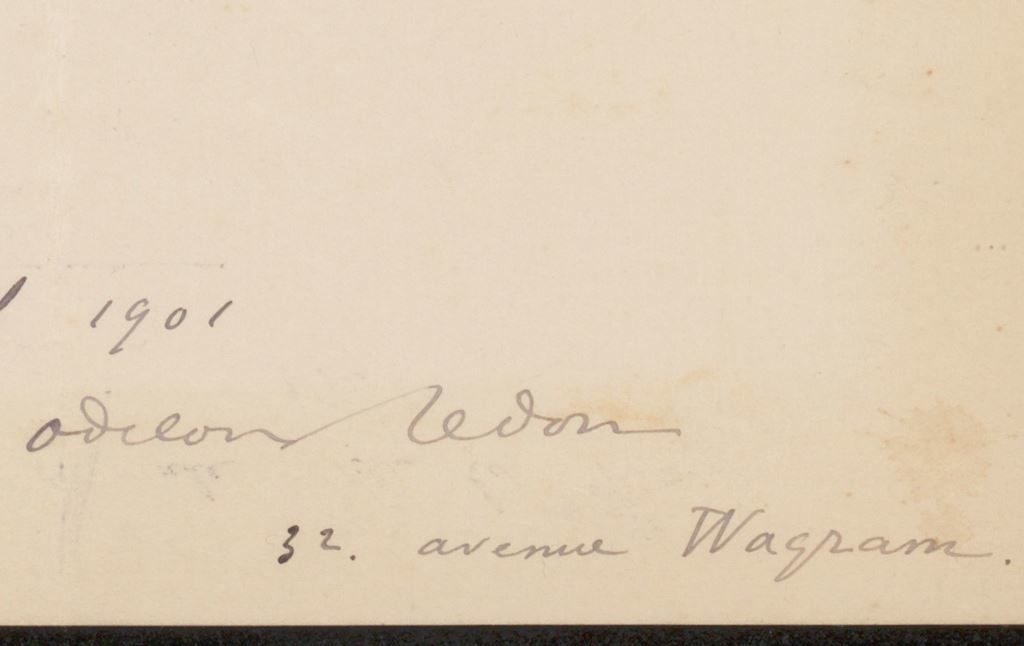 1901
odilon Redon
32. avenue Wagram.